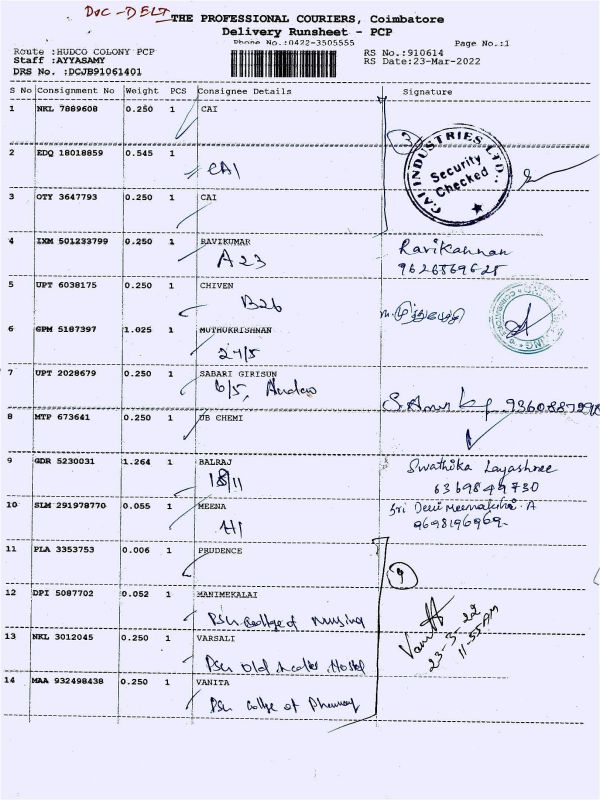 DOC-DELT
THE PROFESSIONAL COURIERS, Coimbatore
Delivery Runsheet - PCP
Phone No.:0422-3505555
Page No.:1
Route :HUDCO COLONY PCP
Staff :AYYASAMY
DRS No. :DCJB91061401
RS No.:910614
RS Date:23-Mar-2022
S No Consignment No Weight PCS Consignee Details Signature
1 NKL 7889608 0.250 1 CAI
3
CAI INDUSTRIES LTD.,
Security
Checked
2 EDQ 18018859 0.545 1
CAI
3 OTY 3647793 0.250 1 CAI
4 IXM 501233799 0.250 1 RAVIKUMAR
A 23
Ravikannan
9626869628
5 UPT 6038175 0.250 1 CHIVEN
B26
6 GPM 5187397 1.025 1 MUTHUKRISHNAN
24/5
7 UPT 2028679 0.250 1 SABARI GIRISUN
6/5,
8 MTP 673641 0.250 1 UB CHEMI
9 GDR 5230031 1.264 1 BALRAJ
18/11
Swathika Layashree
6369849730
10 SLM 291978770 0.055 1 MEENA
H1
Sri Devi Meenakshi. A
9698196969
11 PLA 3353753 0.006 1 PRUDENCE
9
12 DPI 5087702 0.052 1 MANIMEKALAI
PSG College of Nursing
23-3-22
11-55 AM
13 NKL 3012045 0.250 1 VARSALI
PSG Old Hostel
14 MAA 932498438 0.250 1 VANITA
PSG College of Pharmacy